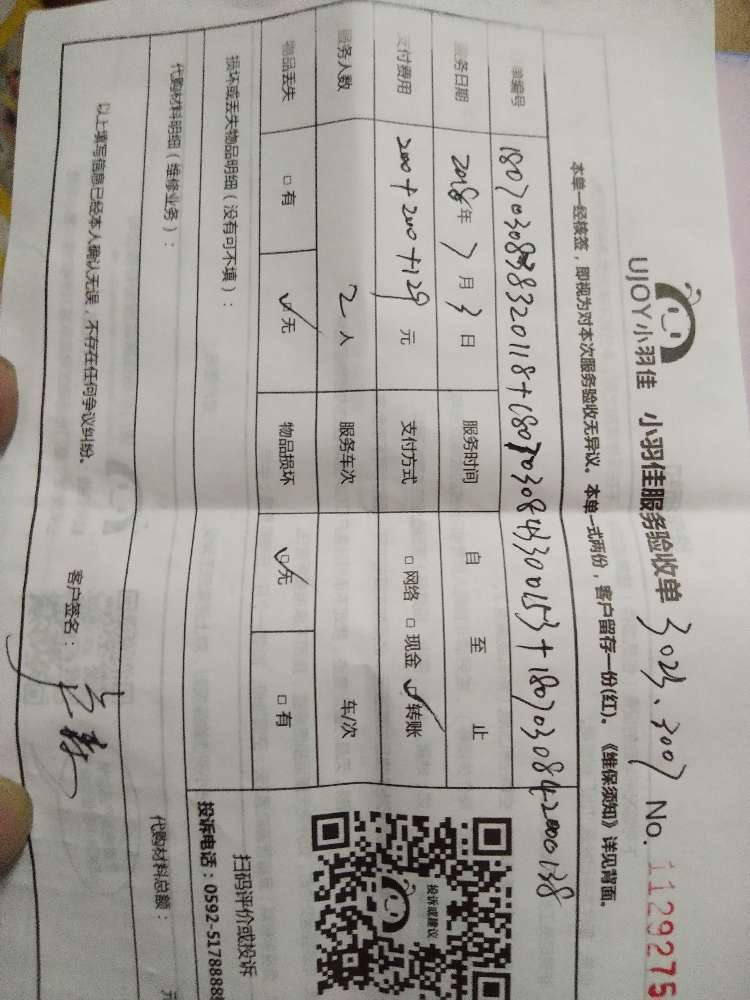 UJOY小羽佳 小羽佳服务验收单 3023、3007 No. 1129275
本单一经核签，即视为对本次服务验收无异议。本单一式两份，客户留存一份(红)。《维保须知》详见背面。
单编号
服务日期 2018年7月3日 服务时间 自 至 止
支付费用 200+200+129 元 支付方式 □网络 □现金 ☑转账
服务人数 2人 服务车次 车/次
物品丢失 □有 ☑无 物品损坏 ☑无 □有
损坏或丢失物品明细（没有可不填）：
代购材料明细（维修业务）： 代购材料总额： 元
以上填写信息已经本人确认无误，不存在任何争议纠纷。 客户签名：
投诉或建议
扫码评价或投诉
投诉电话：0592-5178888